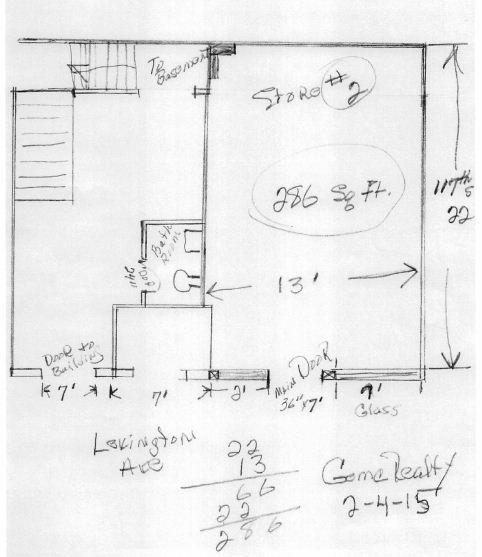 To
Basement
Store #2
286 Sq Ft.
117th S
22
Bath
Room
Door
24"
13'
Door to
Building
7'
7'
2'
Main Door
36" x 7'
Glass
Lexington
Ave
22
13
66
22
286
Realty
2-4-15